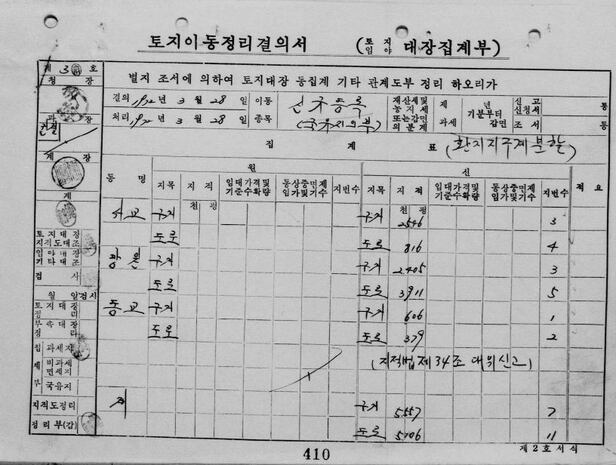 토지이동정리결의서 (토지 임야 대장집계부)
제 3 호
청 장
별지 조서에 의하여 토지대장 동집계 기타 관계도부 정리 하오리가
결의 1972년 3월 28일 이동 신규등록 재산세및 농지세 또는감면 의분계 제 년 기분부터 과세 감면 신고 신청서 조서
처리 1972년 3월 28일 종목
과 장
건설
집 계 표 (환지지구계분할)
계 장
계
동 명 원 신 적 요
지목 지적 임대가격및 기준수확량 동상중면제 임가및기수 지번수 지목 지적 임대가격및 기준수확량 동상중면제 임가및기수 지번수
천 평 천 평
서교 구거 구거 2546 3
토지대장 지적도대조 도로 도로 816 4
임야대장 기타대조 구거 구거 2405 3
검 사 도로 도로 3911 5
월 일 검시 동교 구거 구거 606 1
토지대장 정리 도로 도로 379 2
부속대장 정리
집 계 부 과세지 비과세 면세지 국유지
(지적법 제34조 대위신고)
지적도정리 계 구거 5557 7
정리부(갑) 도로 5106 11
410
제2호서식